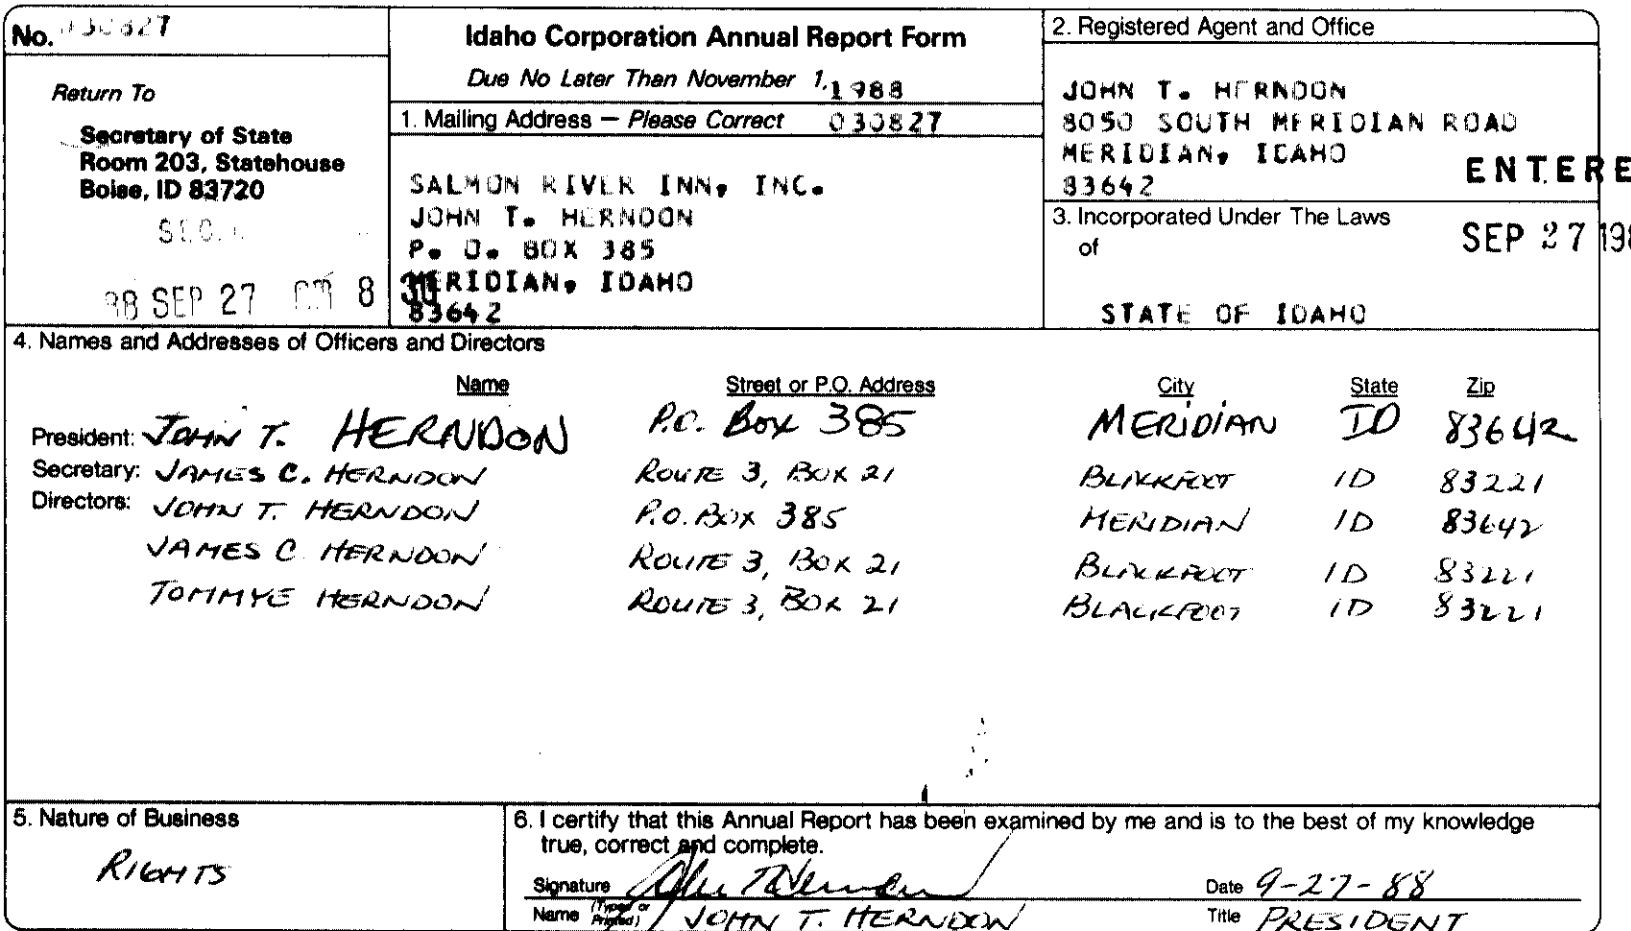 No. 030827
Idaho Corporation Annual Report Form
Due No Later Than November 1, 1988
Return To
Secretary of State
Room 203, Statehouse
Boise, ID 83720
88 SEP 27 8 30
1. Mailing Address — Please Correct 030827
SALMON RIVER INN, INC.
JOHN T. HERNDON
P. O. BOX 385
MERIDIAN, IDAHO
83642
2. Registered Agent and Office
JOHN T. HERNDON
8050 SOUTH MERIDIAN ROAD
MERIDIAN, IDAHO
83642
ENTERE
3. Incorporated Under The Laws
of
SEP 27 198
STATE OF IDAHO
4. Names and Addresses of Officers and Directors
Name Street or P.O. Address City State Zip
President: JOHN T. HERNDON P.O. Box 385 MERIDIAN ID 83642
Secretary: JAMES C. HERNDON ROUTE 3, BOX 21 BLACKFOOT ID 83221
Directors: JOHN T. HERNDON P.O. BOX 385 MERIDIAN ID 83642
JAMES C HERNDON ROUTE 3, BOX 21 BLACKFOOT ID 83221
TOMMYE HERNDON ROUTE 3, BOX 21 BLACKFOOT ID 83221
5. Nature of Business
RIGHTS
6. I certify that this Annual Report has been examined by me and is to the best of my knowledge
true, correct and complete.
Signature John T Herndon Date 9-27-88
Name (Typed or Printed) JOHN T. HERNDON Title PRESIDENT